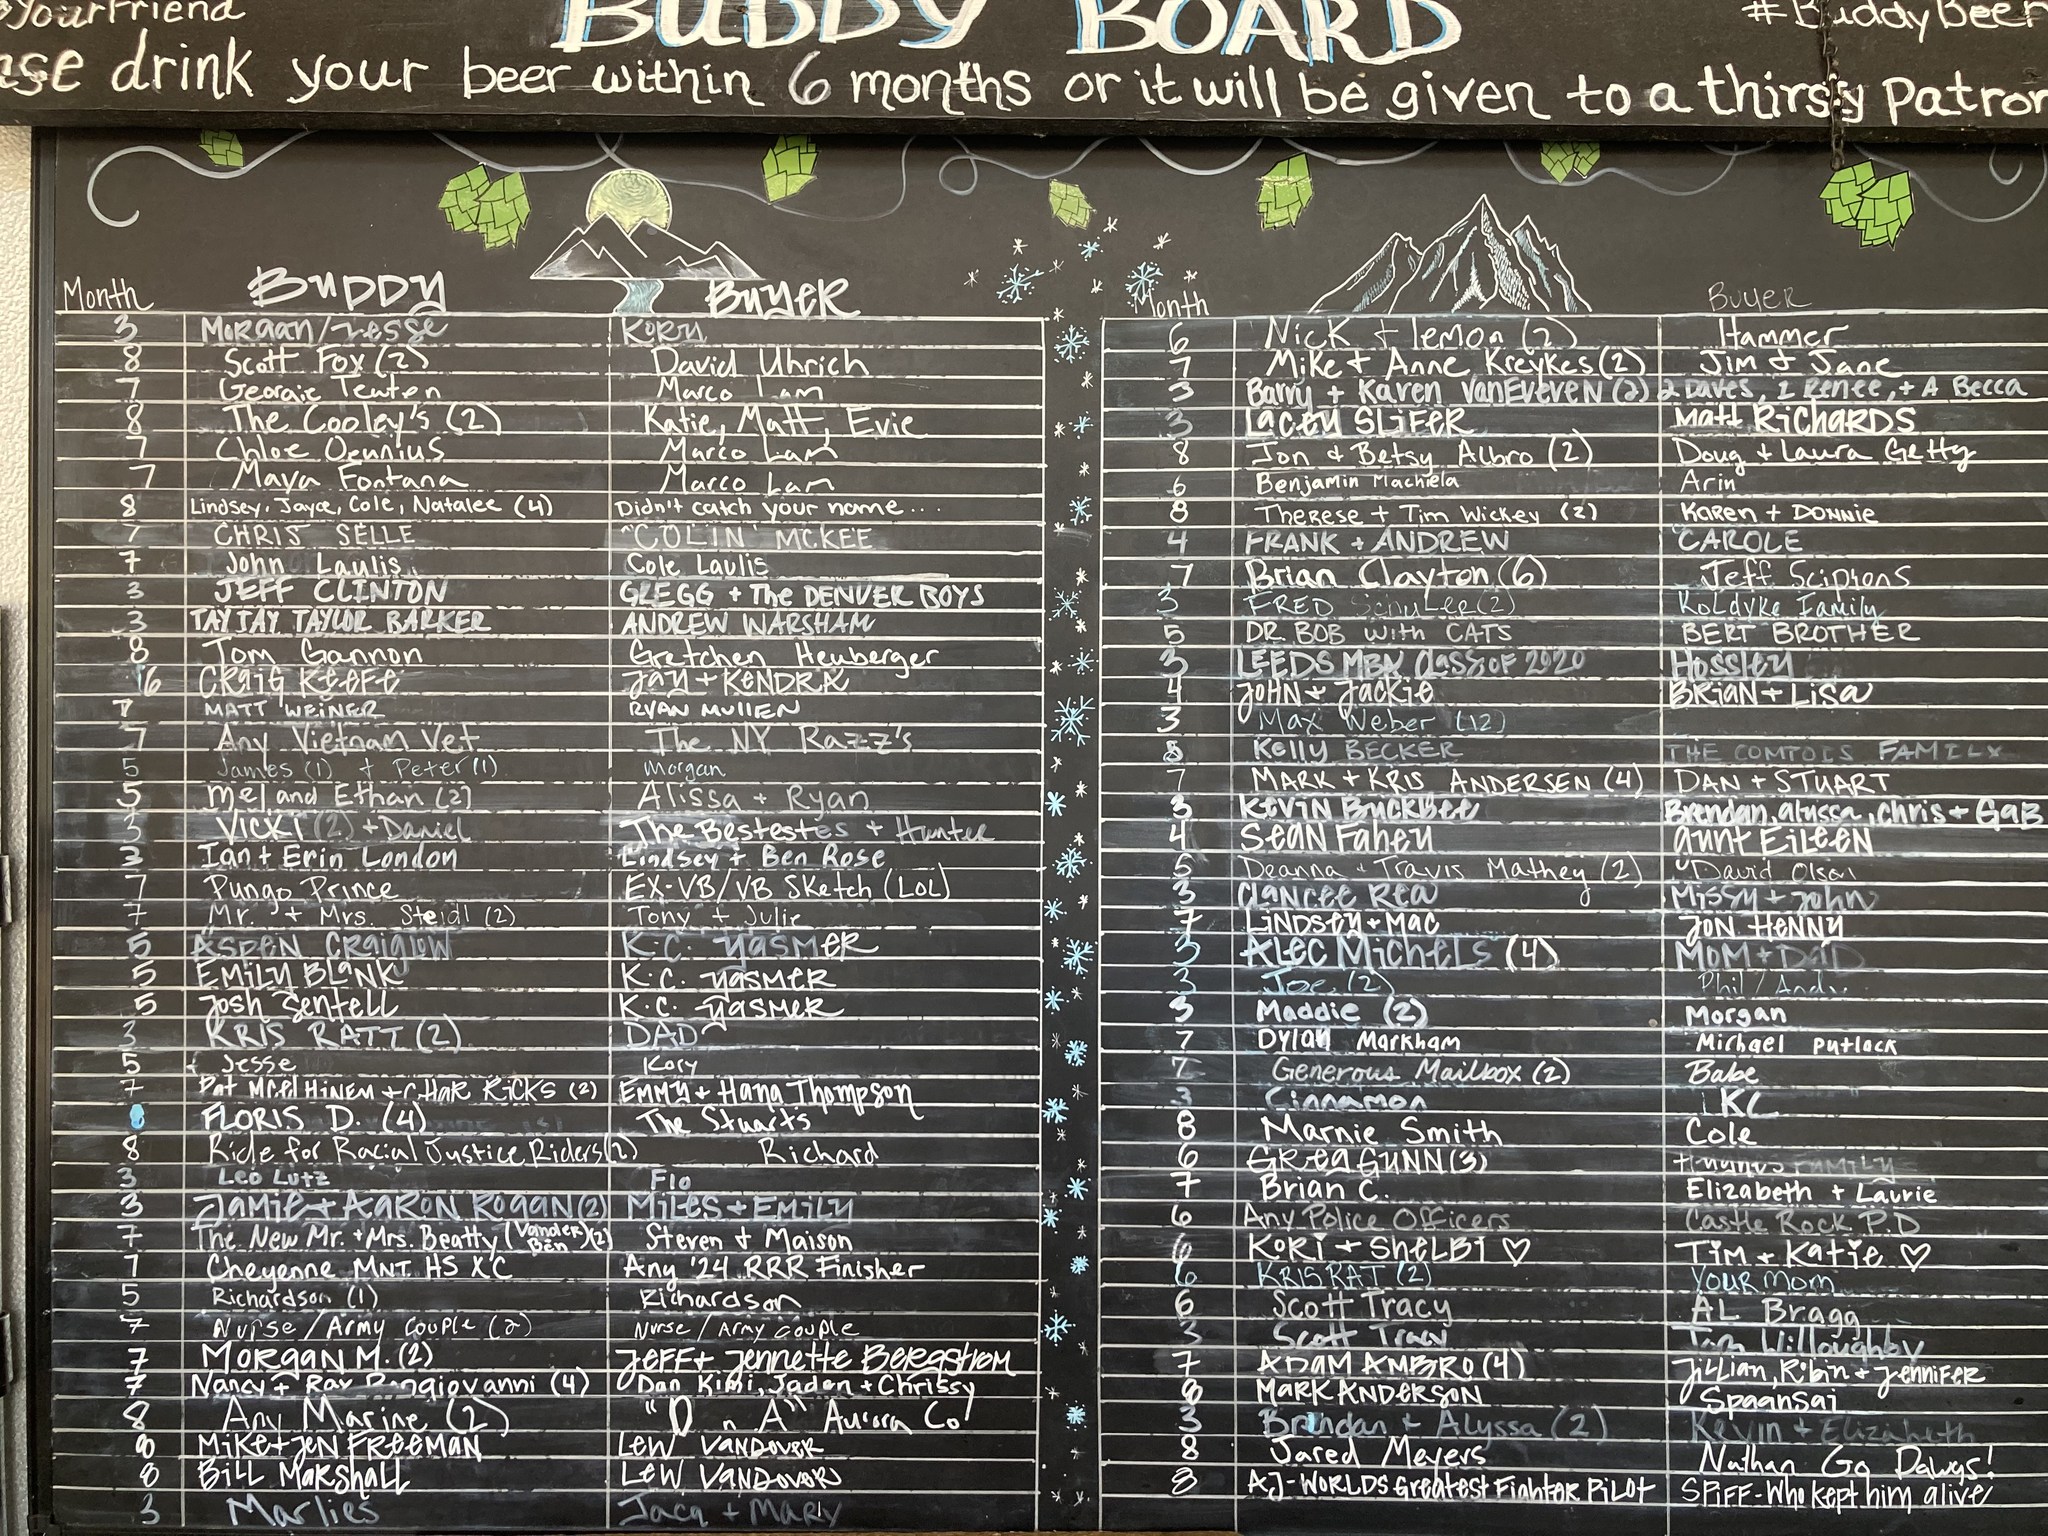 @YourFriend
BUDDY BOARD
#BuddyBeer
ase drink your beer within 6 months or it will be given to a thirsty patron
Month BUDDY BUYER
3 MORGAN/Jesse KORY
8 Scott Fox (2) David Uhrich
7 Georgie Teuten Marco Lam
8 The Cooley's (2) Katie, Matt, Evie
7 Chloe Marco Lam
7 Maya Fontana Marco Lam
8 Lindsey, Jayce, Cole, Natalee (4) Didn't catch your name....
7 CHRIS SELLE COLIN MCKEE
7 John Laulis Cole Laulis
3 JEFF CLINTON GLEGG + The DENVER BOYS
3 TAYJAY TAYLOR BARKER ANDREW WARSHAM
8 Tom Gannon Gretchen Heuberger
6 CRAIG KEEFE JAY + KENDRA
7 MATT WEINER RYAN MULLEN
7 Any Vietnam Vet The NY Razz's
5 James (1) + Peter (1) Morgan
5 Mel and Ethan (2) Alissa + Ryan
3 VICKI (2) + Daniel The Bestestes + Hunter
3 Ian + Erin London Lindsey + Ben Rose
7 Pungo Prince EX-VB/VB Sketch (LOL)
7 Mr. + Mrs. Steidl (2) Tony + Julie
5 ASPEN CRAIGLOW K.C. YASMER
5 EMILY BLANK K.C. YASMER
5 Josh Sentell K.C. YASMER
3 KRIS RATT (2) DAD
5 Jesse Kory
7 Pat + CHAR RICKS (2) EMMY + Hana Thompson
8 FLORIS D. (4) The Stuarts
8 Ride for Racial Justice Riders (2) Richard
3 Leo Lutz Flo
3 Jamie + AARON ROGAN (2) MILES + EMILY
7 The New Mr. + Mrs. Beatty (Vander Ben) (2) Steven + Maison
7 Cheyenne MNT. HS XC Any '24 RRR Finisher
5 Richardson (1) Richardson
7 Nurse / Army Couple (2) Nurse / Army Couple
7 MORGAN M. (2) JEFF + Jennette BERGSTROM
7 Nancy + Ray Bongiovanni (4) Dan Kimi, Jaden + Chrissy
8 Any Marine (2) "D n A" Aurora Co!
8 MIKE + JEN FREEMAN LEW VANDOVER
8 BILL MARSHALL LEW VANDOVER
3 Marlies Jacq + MARY
Month BUYER
6 Nick + lemon (2) Hammer
7 Mike + Anne Kreykes (2) Jim & Jane
3 Barry + Karen VanEveren (2) 2 Daves, 1 Renee, + A Becca
3 LACEY SLIFER Matt RICHARDS
8 Jon & Betsy Albro (2) Doug + Laura Getty
6 Benjamin Machiela Arin
8 Therese + Tim Wickey (2) KAREN + DONNIE
4 FRANK + ANDREW CAROLE
7 Brian Clayton (6) Jeff Scipions
3 FRED Schuler (2) Koldyke Family
5 DR. BOB with CATS BERT BROTHER
3 LEEDS MBA Class of 2020 Hossley
4 JOHN + Jackie BRIAN + LISA
3 Max Weber (12)
8 Kelly BECKER THE COMTOIS FAMILY
7 MARK + KRIS ANDERSEN (4) DAN + STUART
3 KEVIN BUCKBEE Brendan, alyssa, chris + GAB
4 SEAN FAHEY aunt EILEEN
5 Deanna + Travis Mathey (2) David Olson
3 Clancee Rea Missy + John
7 LINDSEY + MAC JON HENNY
3 ALEC MICHELS (4) MOM + DAD
3 Joe (2) Phil / Andy
3 Maddie (2) Morgan
7 Dylan Markham Michael Putlack
7 Generous Mailbox (2) Babe
3 Cinnamon KC
8 Marnie Smith Cole
6 GREG GUNN (3) FAMILY
7 Brian C. Elizabeth + Laurie
6 Any Police Officers Castle Rock P.D
6 KORI + SHELBI ♡ TIM + Katie ♡
6 KRIS RAT (2) YOUR MOM
6 Scott Tracy AL Bragg
3 Scott Tracy Tom Willoughby
7 ADAM AMBRO (4) Jillian, Robin + Jennifer
8 MARK ANDERSON Spaansai
3 Brendan + Alyssa (2) Kevin + Elizabeth
8 Jared Meyers Nathan Go Dawgs!
8 AJ - WORLDS Greatest Fighter Pilot SPIFF - Who kept him alive